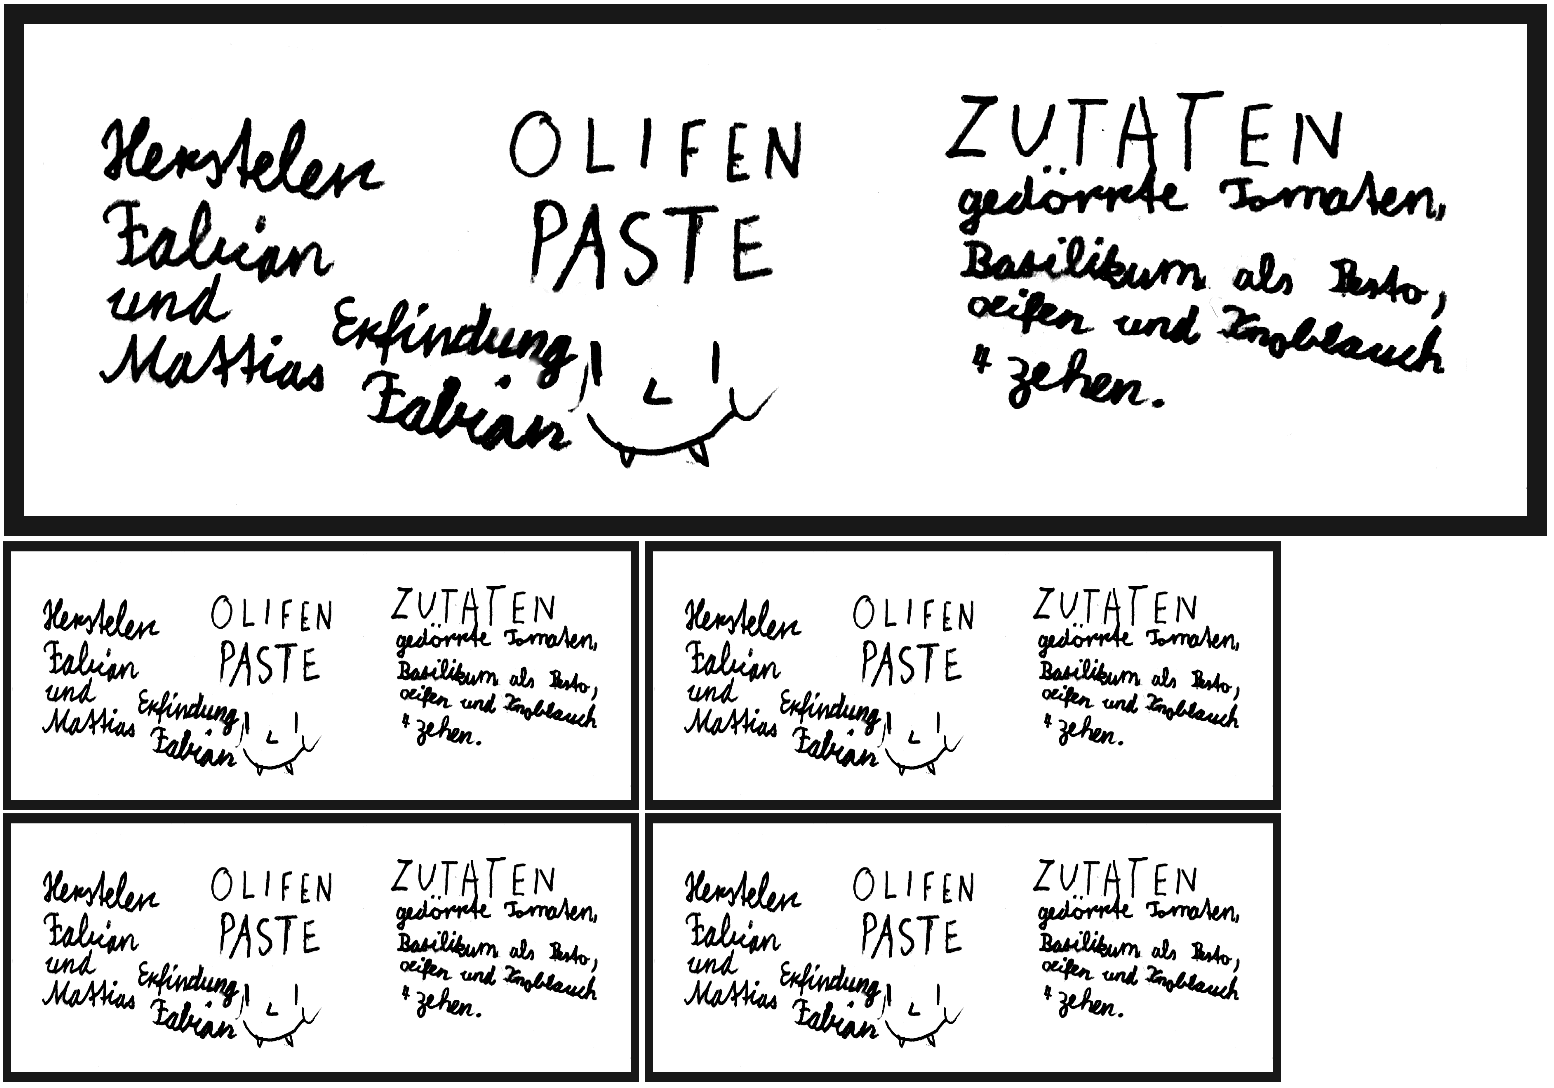 Herstelen
Fabian
und
Mattias
OLIFEN
PASTE
Erfindung
Fabian
ZUTATEN
gedörrte Tomaten,
Basilikum als Pesto,
oeifen und Knoblauch
4 zehen.
Herstelen
Fabian
und
Mattias
OLIFEN
PASTE
Erfindung
Fabian
ZUTATEN
gedörrte Tomaten,
Basilikum als Pesto,
oeifen und Knoblauch
4 zehen.
Herstelen
Fabian
und
Mattias
OLIFEN
PASTE
Erfindung
Fabian
ZUTATEN
gedörrte Tomaten,
Basilikum als Pesto,
oeifen und Knoblauch
4 zehen.
Herstelen
Fabian
und
Mattias
OLIFEN
PASTE
Erfindung
Fabian
ZUTATEN
gedörrte Tomaten,
Basilikum als Pesto,
oeifen und Knoblauch
4 zehen.
Herstelen
Fabian
und
Mattias
OLIFEN
PASTE
Erfindung
Fabian
ZUTATEN
gedörrte Tomaten,
Basilikum als Pesto,
oeifen und Knoblauch
4 zehen.